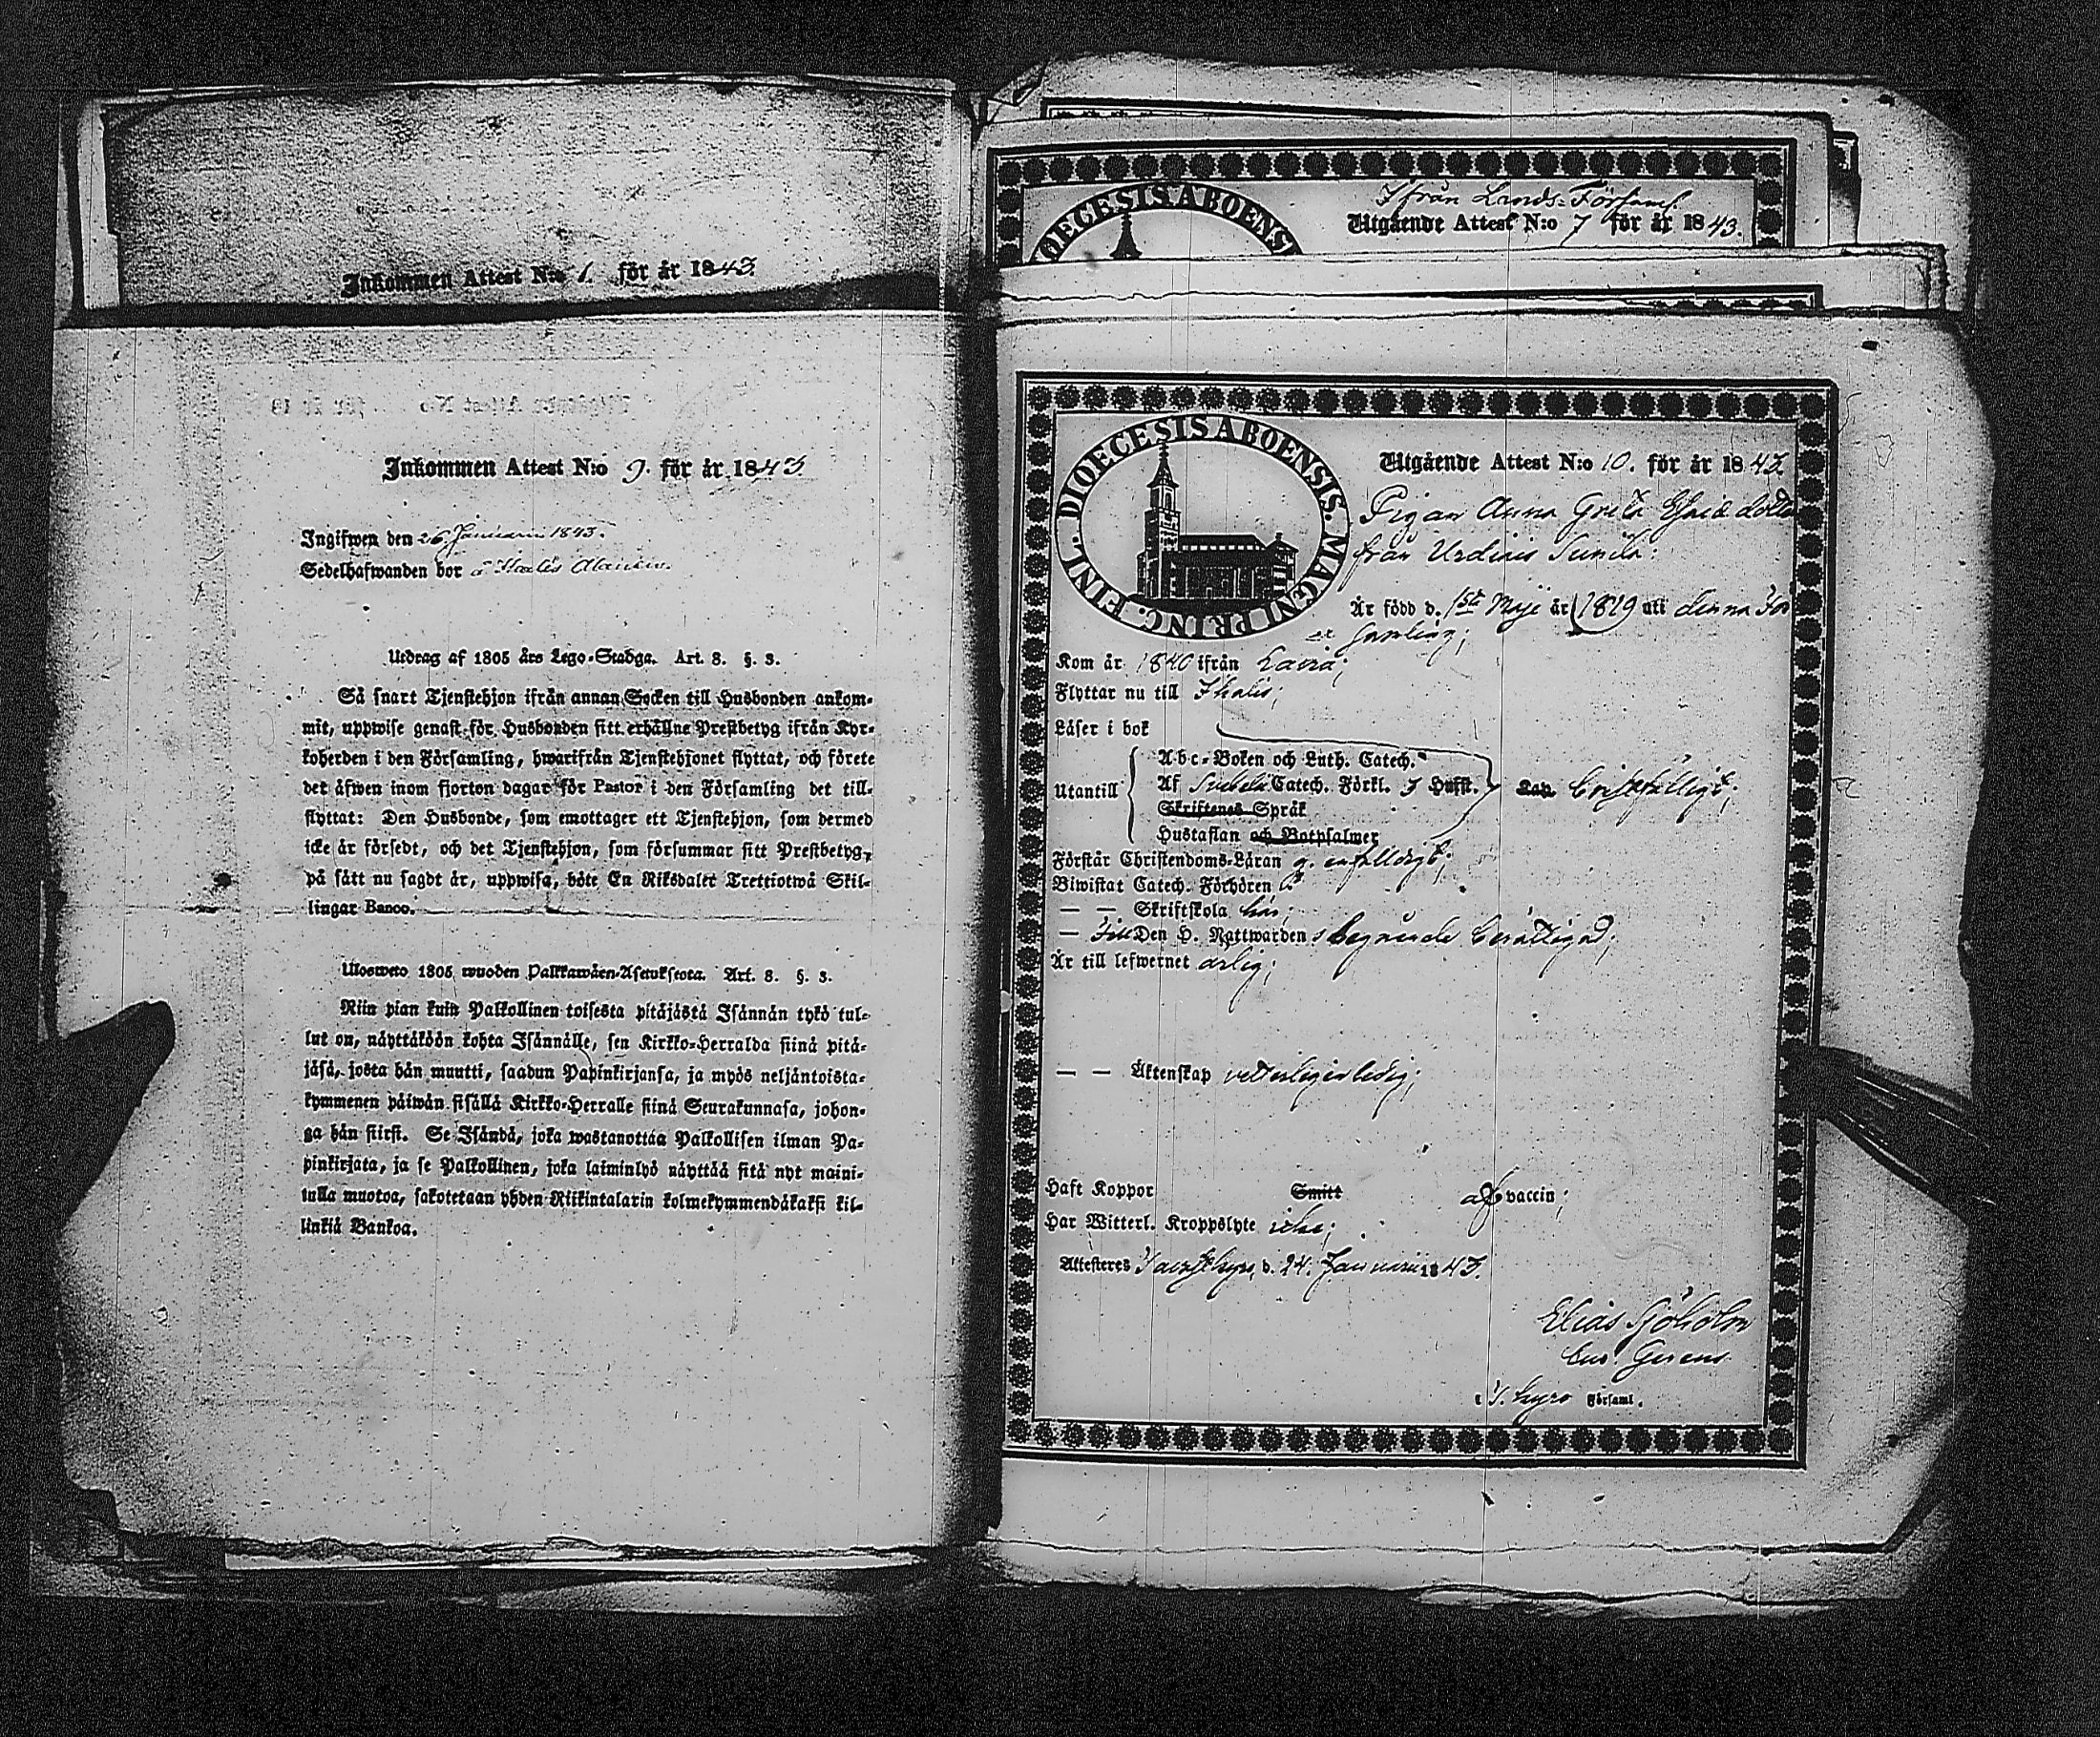 Inkommen Attest N:o 1. för år 1843.
Inkommen Attest N:o 9. för år 1843
Ingifwen den 26 Januarii 1843.
Sedelhafwanden bor å
Utdrag af 1805 års Lego-Stadga. Art. 8. §. 3.
Så snart Tjenstehjon ifrån annan Socken till Husbonden ankom-
mit, uppwise genast för Husbonden sitt erhållne Prestbetyg ifrån Kyr-
koherden i den Församling, hwarifrån Tjenstehjonet flyttat, och förete
det äfwen inom fjorton dagar för Pastor i den Församling det till-
flyttat: Den Husbonde, som emottager ett Tjenstehjon, som dermed
icke är försedt, och det Tjenstehjon, som försummar sitt Prestbetyg,
på sätt nu sagdt är, uppwisa, böte En Riksdaler Trettiotwå Skil-
lingar Banco.
Ulosweto 1805 wuoden Palkkawäen-Asetuksesta. Art. 8. §. 3.
Niin pian kuin Palkollinen toisesta pitäjästä Isännän tykö tul-
lut on, näyttäköön kohta Isännälle, sen Kirkko-Herralda siinä pitä-
jäsä, josta hän muutti, saadun Papinkirjansa, ja myös neljäntoista-
kymmenen päiwän sisällä Kirkko-Herralle siinä Seurakunnasa, johon-
ga hän siirsi. Se Isändä, joka wastanottaa Palkollisen ilman Pa-
pinkirjata, ja se Palkollinen, joka laiminlyö näyttää sitä nyt maini-
tulla muotoa, sakotetaan yhden Riikintalarin kolmekymmendäkaksi kil-
linkiä Bankoa.
Ifrån Lands-Förs.
Utgående Attest N:o 7 för år 1843.
DIOECESIS ABOENSI
DIOECESIS ABOENSIS. MAGNI PRINC. FINL.
Utgående Attest N:o 10. för år 1843
Pigan Anna Greta
från
Är född d. 1ste Maje år 1819 uti denna För
samling;
Kom år 1840 ifrån Lavia;
Flyttar nu till Ikalis;
Läser i bok
Utantill
Abc-Boken och Luth. Catech.
Af Svebelii Catech. Förkl. 3 Hufst.
Skriftenes Språk
Hustaflan och Botpsalmer
Förstår Christendoms-Läran g. enfaldigt;
Biwistat Catech. Förhören
— — Skriftskola här;
— Till Den H. Nattwardens begående berättigad;
Är till lefwernet ärlig;
— — Äktenskap vetterligen ledig;
Haft Koppor Smitt af vaccin;
Har Witterl. Kroppslyte icke;
Attesteres d. 24. Januarii 1843.
Elias Sjöholm
Cur. Gerens
i T. Kyro Församl.